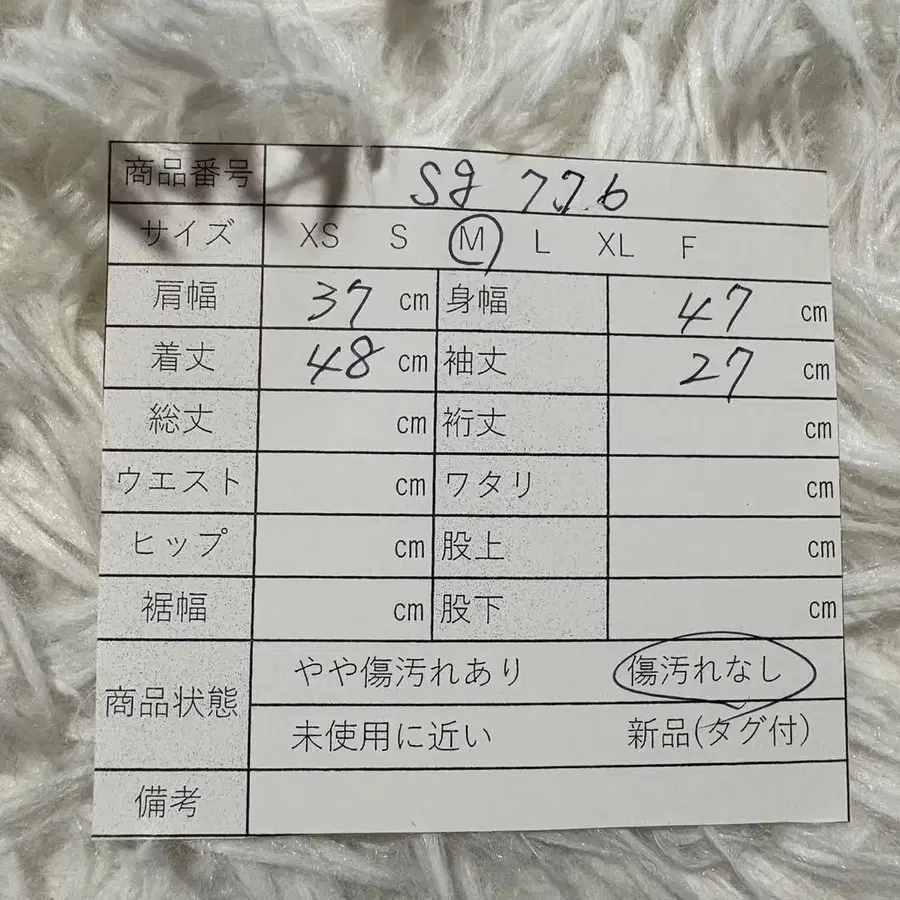 商品番号 sg 776
サイズ XS S M L XL F
肩幅 37 cm 身幅 47 cm
着丈 48 cm 袖丈 27 cm
総丈 cm 裄丈 cm
ウエスト cm ワタリ cm
ヒップ cm 股上 cm
裾幅 cm 股下 cm
商品状態 やや傷汚れあり 傷汚れなし
未使用に近い 新品(タグ付)
備考